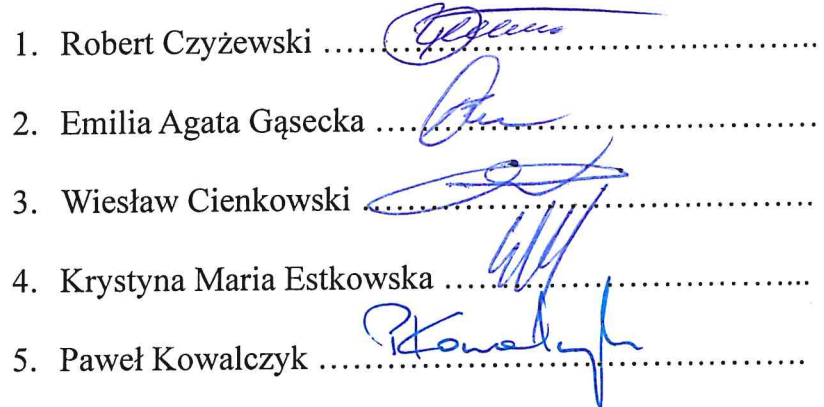 1. Robert Czyżewski ..............................................
2. Emilia Agata Gąsecka ..............................................
3. Wiesław Cienkowski ..............................................
4. Krystyna Maria Estkowska ..............................................
5. Paweł Kowalczyk PKowalczyk ..............................................